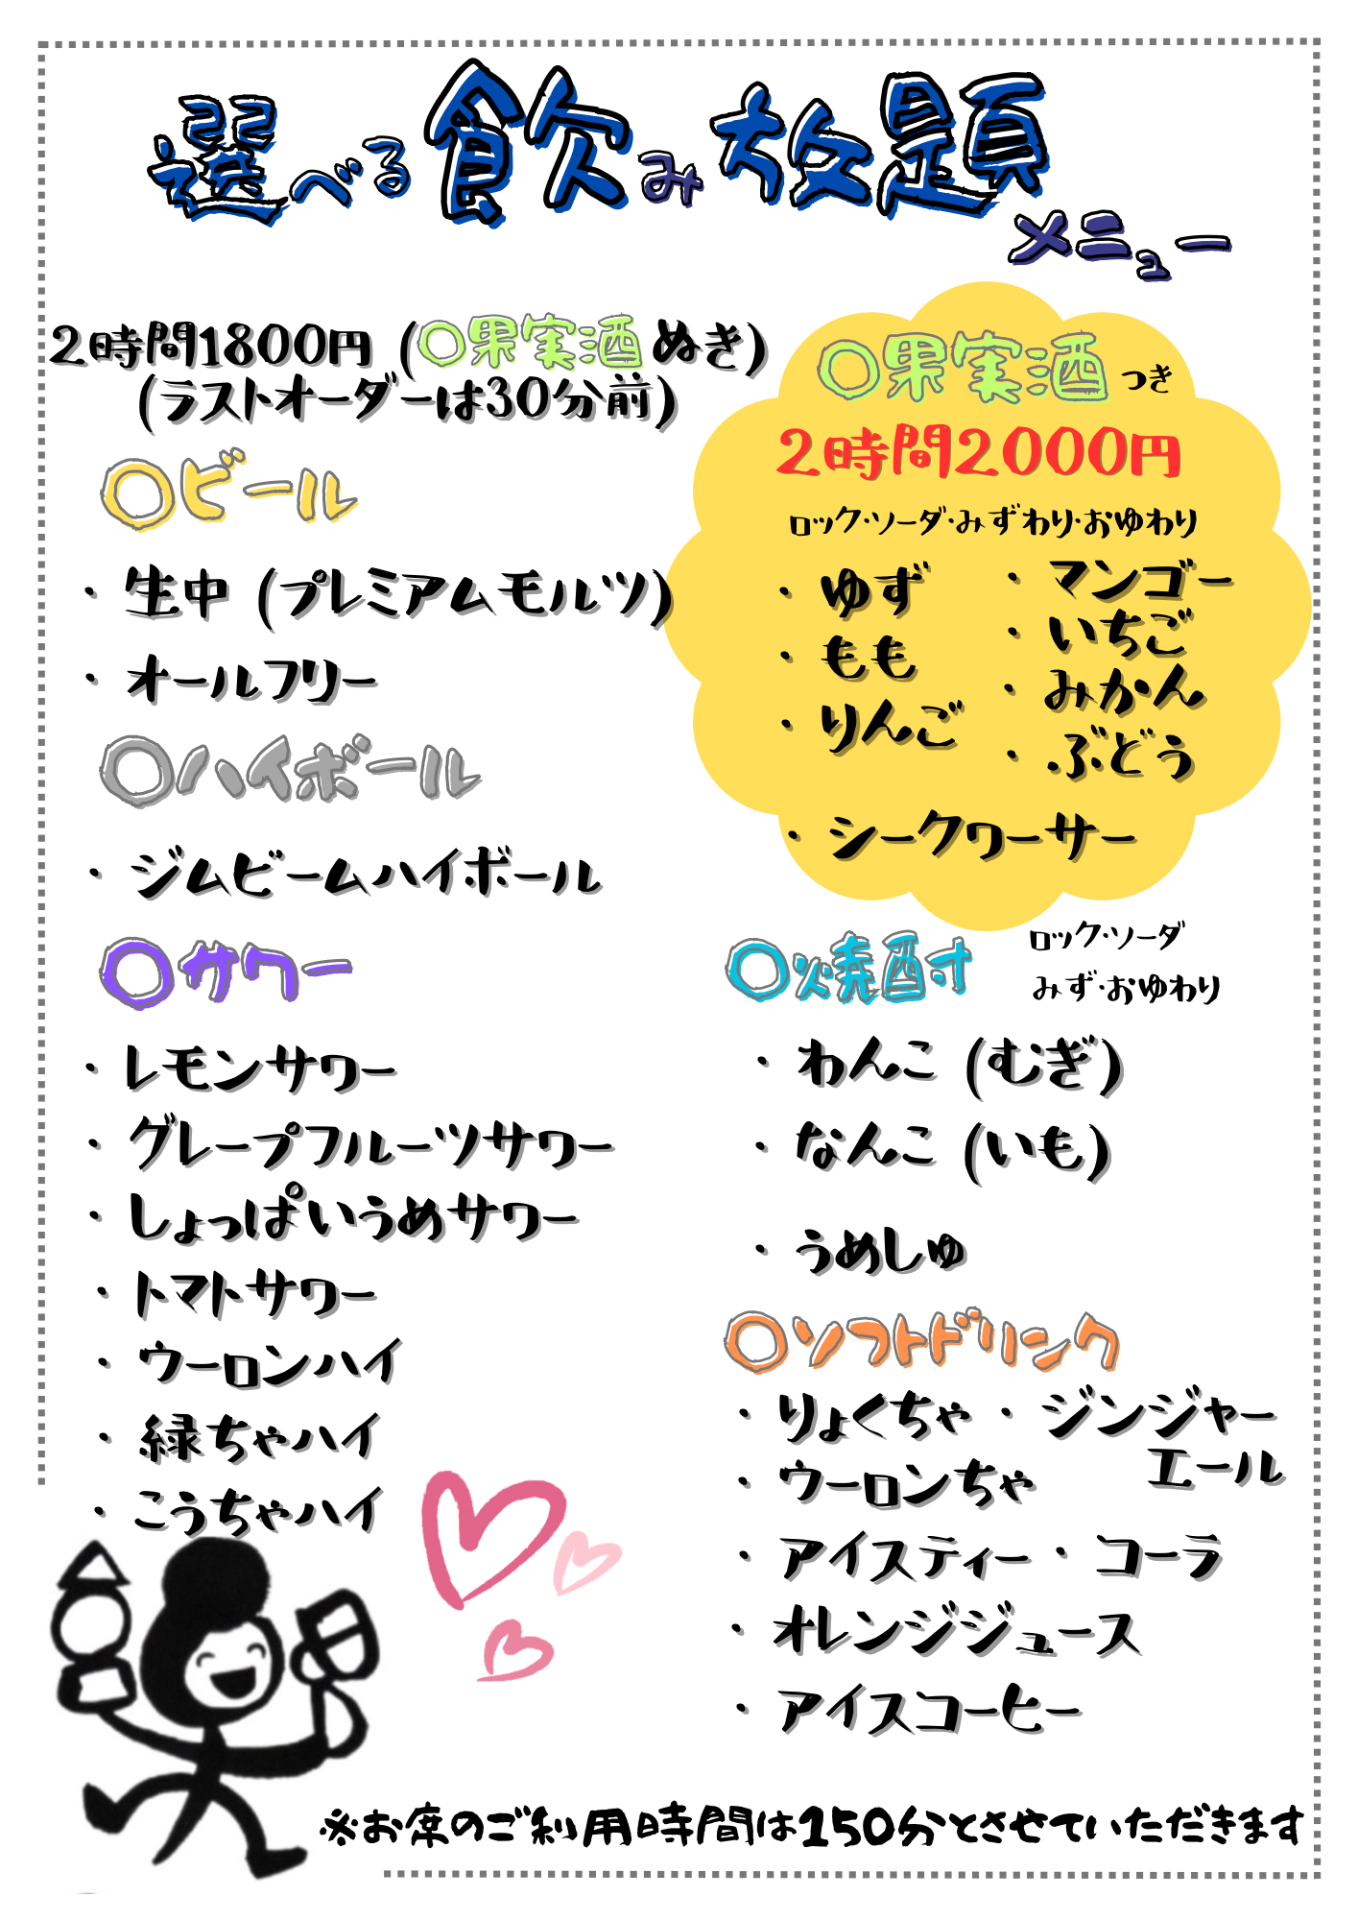 選べる飲み放題
メニュー
2時間1800円 (〇果実酒 ぬき)
(ラストオーダーは30分前)
〇ビール
・ 生中 (プレミアムモルツ)
・ オールフリー
〇ハイボール
・ ジムビームハイボール
〇サワー
・ レモンサワー
・ グレープフルーツサワー
・ しょっぱいうめサワー
・ トマトサワー
・ ウーロンハイ
・ 緑ちゃハイ
・ こうちゃハイ
〇果実酒 つき
2時間2000円
ロック・ソーダ・みずわり・おゆわり
・ ゆず
・ もも
・ りんご
・ マンゴー
・ いちご
・ みかん
・ ぶどう
・ シークワーサー
〇焼酎
ロック・ソーダ
みず・おゆわり
・ わんこ (むぎ)
・ なんこ (いも)
・ うめしゅ
〇ソフトドリンク
・ りょくちゃ ・ ジンジャー
エール
・ ウーロンちゃ
・ アイスティー ・ コーラ
・ オレンジジュース
・ アイスコーヒー
※お席のご利用時間は150分とさせていただきます